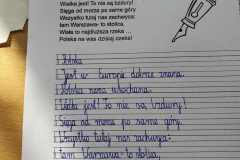 Wielka jest! To nie są bzdury!
Sięga od morza po same góry
Wszystko tutaj nas zachwyca:
tam Warszawa- to stolica,
Wisła to najdłuższa rzeka ...
Polska na was dzisiaj czeka!
Polska
Jest w Europie dobrze znana.
Polska nasza ukochana.
Wielka jest! To nie są bzdury!
Sięga od morza po same góry,
Wszystko tutaj nas zachwyca:
tam Warszawa- to stolica,